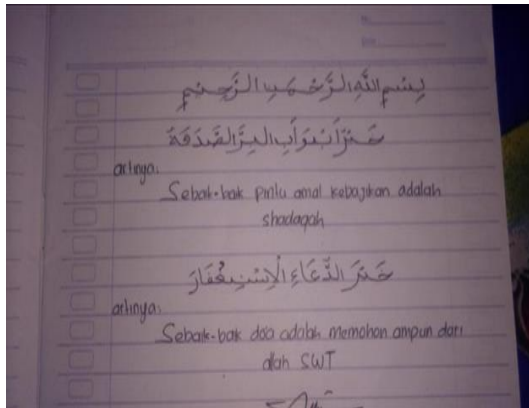 بِسْمِ اللَّهِ الرَّحْمَنِ الرَّحِيْمِ
خَيْرَ أَبْوَابِ البِرَّ الصَّدَقَةَ
artinya:
Sebaik-baik pintu amal kebajikan adalah
shadaqah
خَيْرَ الدُّعَاءِ الْإِسْتِغْفَارَ
artinya:
Sebaik-baik doa adalah memohon ampun dari
allah SWT